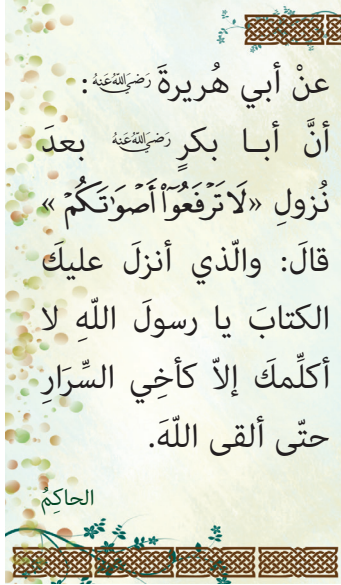 عنْ أبي هُريرةَ رَضِيَ اللَّهُ عَنْهُ :
أنَّ أبــا بكرٍ رَضِيَ اللَّهُ عَنْهُ بعدَ
نُزولِ «لَا تَرْفَعُوٓا۟ أَصْوَٰتَكُمْ »
قالَ: والّذي أنزلَ عليكَ
الكتابَ يا رسولَ اللّهِ لا
أكلِّمكَ إلاّ كأخِي السِّرَارِ
حتّى ألقى اللّهَ.
الحاكِمُ